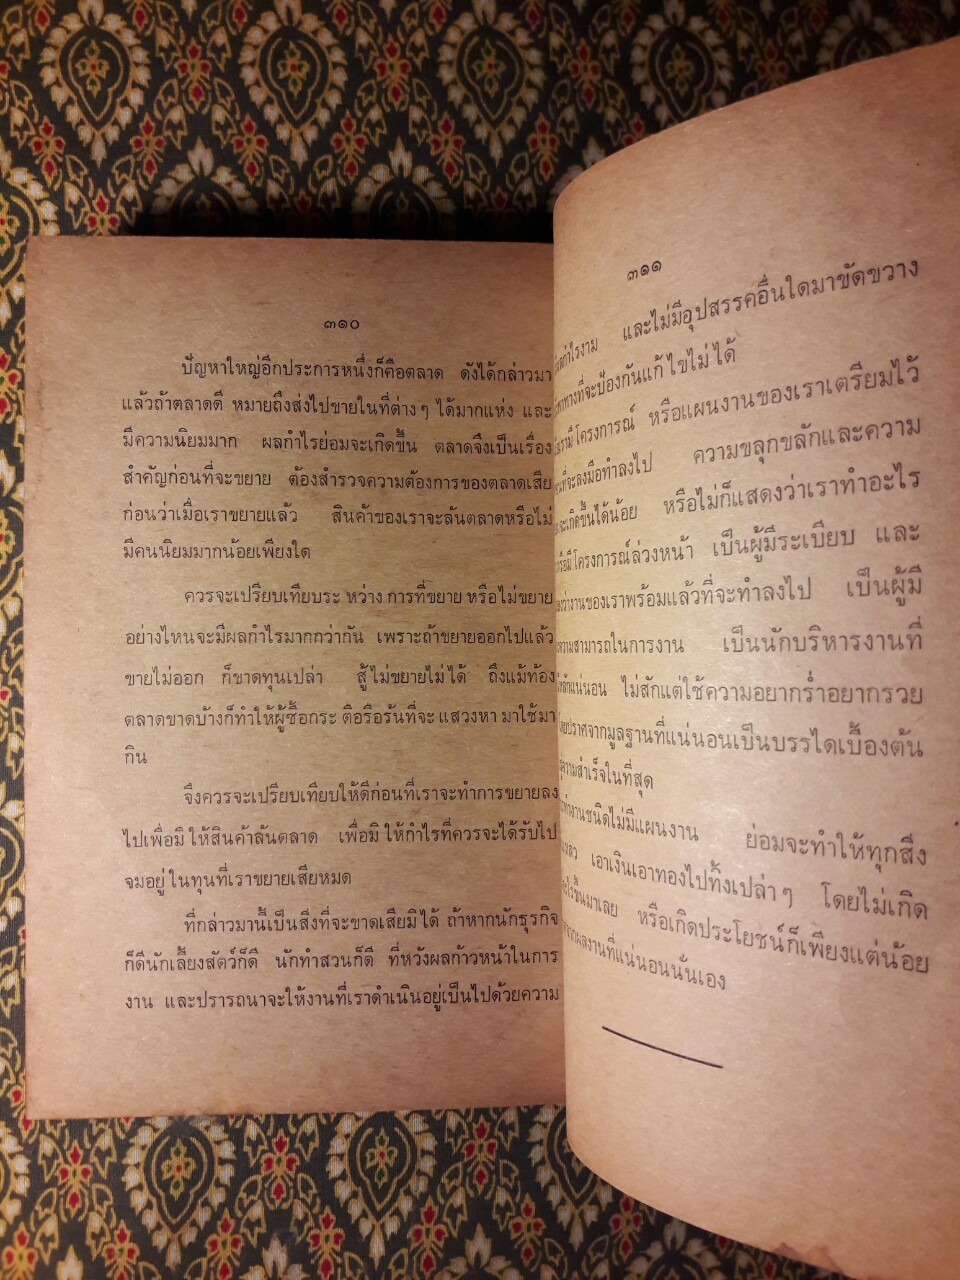 ๓๑๐
ปัญหาใหญ่อีกประการหนึ่งก็คือตลาด ดังได้กล่าวมา
แล้วถ้าตลาดดี หมายถึงส่งไปขายในที่ต่างๆ ได้มากแห่ง และ
มีความนิยมมาก ผลกำไรย่อมจะเกิดขึ้น ตลาดจึงเป็นเรื่อง
สำคัญก่อนที่จะขยาย ต้องสำรวจความต้องการของตลาดเสีย
ก่อนว่าเมื่อเราขยายแล้ว สินค้าของเราจะล้นตลาดหรือไม่
มีคนนิยมมากน้อยเพียงใด
ควรจะเปรียบเทียบระหว่าง การที่ขยาย หรือไม่ขยาย
อย่างไหนจะมีผลกำไรมากกว่ากัน เพราะถ้าขยายออกไปแล้ว
ขายไม่ออก ก็ขาดทุนเปล่า สู้ไม่ขยายไม่ได้ ถึงแม้ท้อง
ตลาดขาดบ้างก็ทำให้ผู้ซื้อกระตือรือร้นที่จะ แสวงหา มาใช้มา
กิน
จึงควรจะเปรียบเทียบให้ดีก่อนที่เราจะทำการขยายลง
ไปเพื่อมิให้สินค้าล้นตลาด เพื่อมิให้กำไรที่ควรจะได้รับไป
จมอยู่ในทุนที่เราขยายเสียหมด
ที่กล่าวมานี้เป็นสิ่งที่จะขาดเสียมิได้ ถ้าหากนักธุรกิจ
ก็ดีนักเลี้ยงสัตว์ก็ดี นักทำสวนก็ดี ที่หวังผลก้าวหน้าในการ
งาน และปรารถนาจะให้งานที่เราดำเนินอยู่เป็นไปด้วยความ
๓๑๑
และไม่มีอุปสรรคอื่นใดมาขัดขวาง
ทางที่จะป้องกันแก้ไขไม่ได้
มีโครงการณ์ หรือแผนงานของเราเตรียมไว้
ที่จะลงมือทำลงไป ความขลุกขลักและความ
จะเกิดขึ้นได้น้อย หรือไม่ก็แสดงว่าเราทำอะไร
มีโครงการณ์ล่วงหน้า เป็นผู้มีระเบียบ และ
ว่างานของเราพร้อมแล้วที่จะทำลงไป เป็นผู้มี
ความสามารถในการงาน เป็นนักบริหารงานที่
หลักแน่นอน ไม่สักแต่ใช้ความอยากร่ำอยากรวย
ปราศจากมูลฐานที่แน่นอนเป็นบรรไดเบื้องต้น
ความสำเร็จในที่สุด
ทำงานชนิดไม่มีแผนงาน ย่อมจะทำให้ทุกสิ่ง
เอาเงินเอาทองไปทิ้งเปล่าๆ โดยไม่เกิด
ขึ้นมาเลย หรือเกิดประโยชน์ก็เพียงแต่น้อย
ผลงานที่แน่นอนนั่นเอง